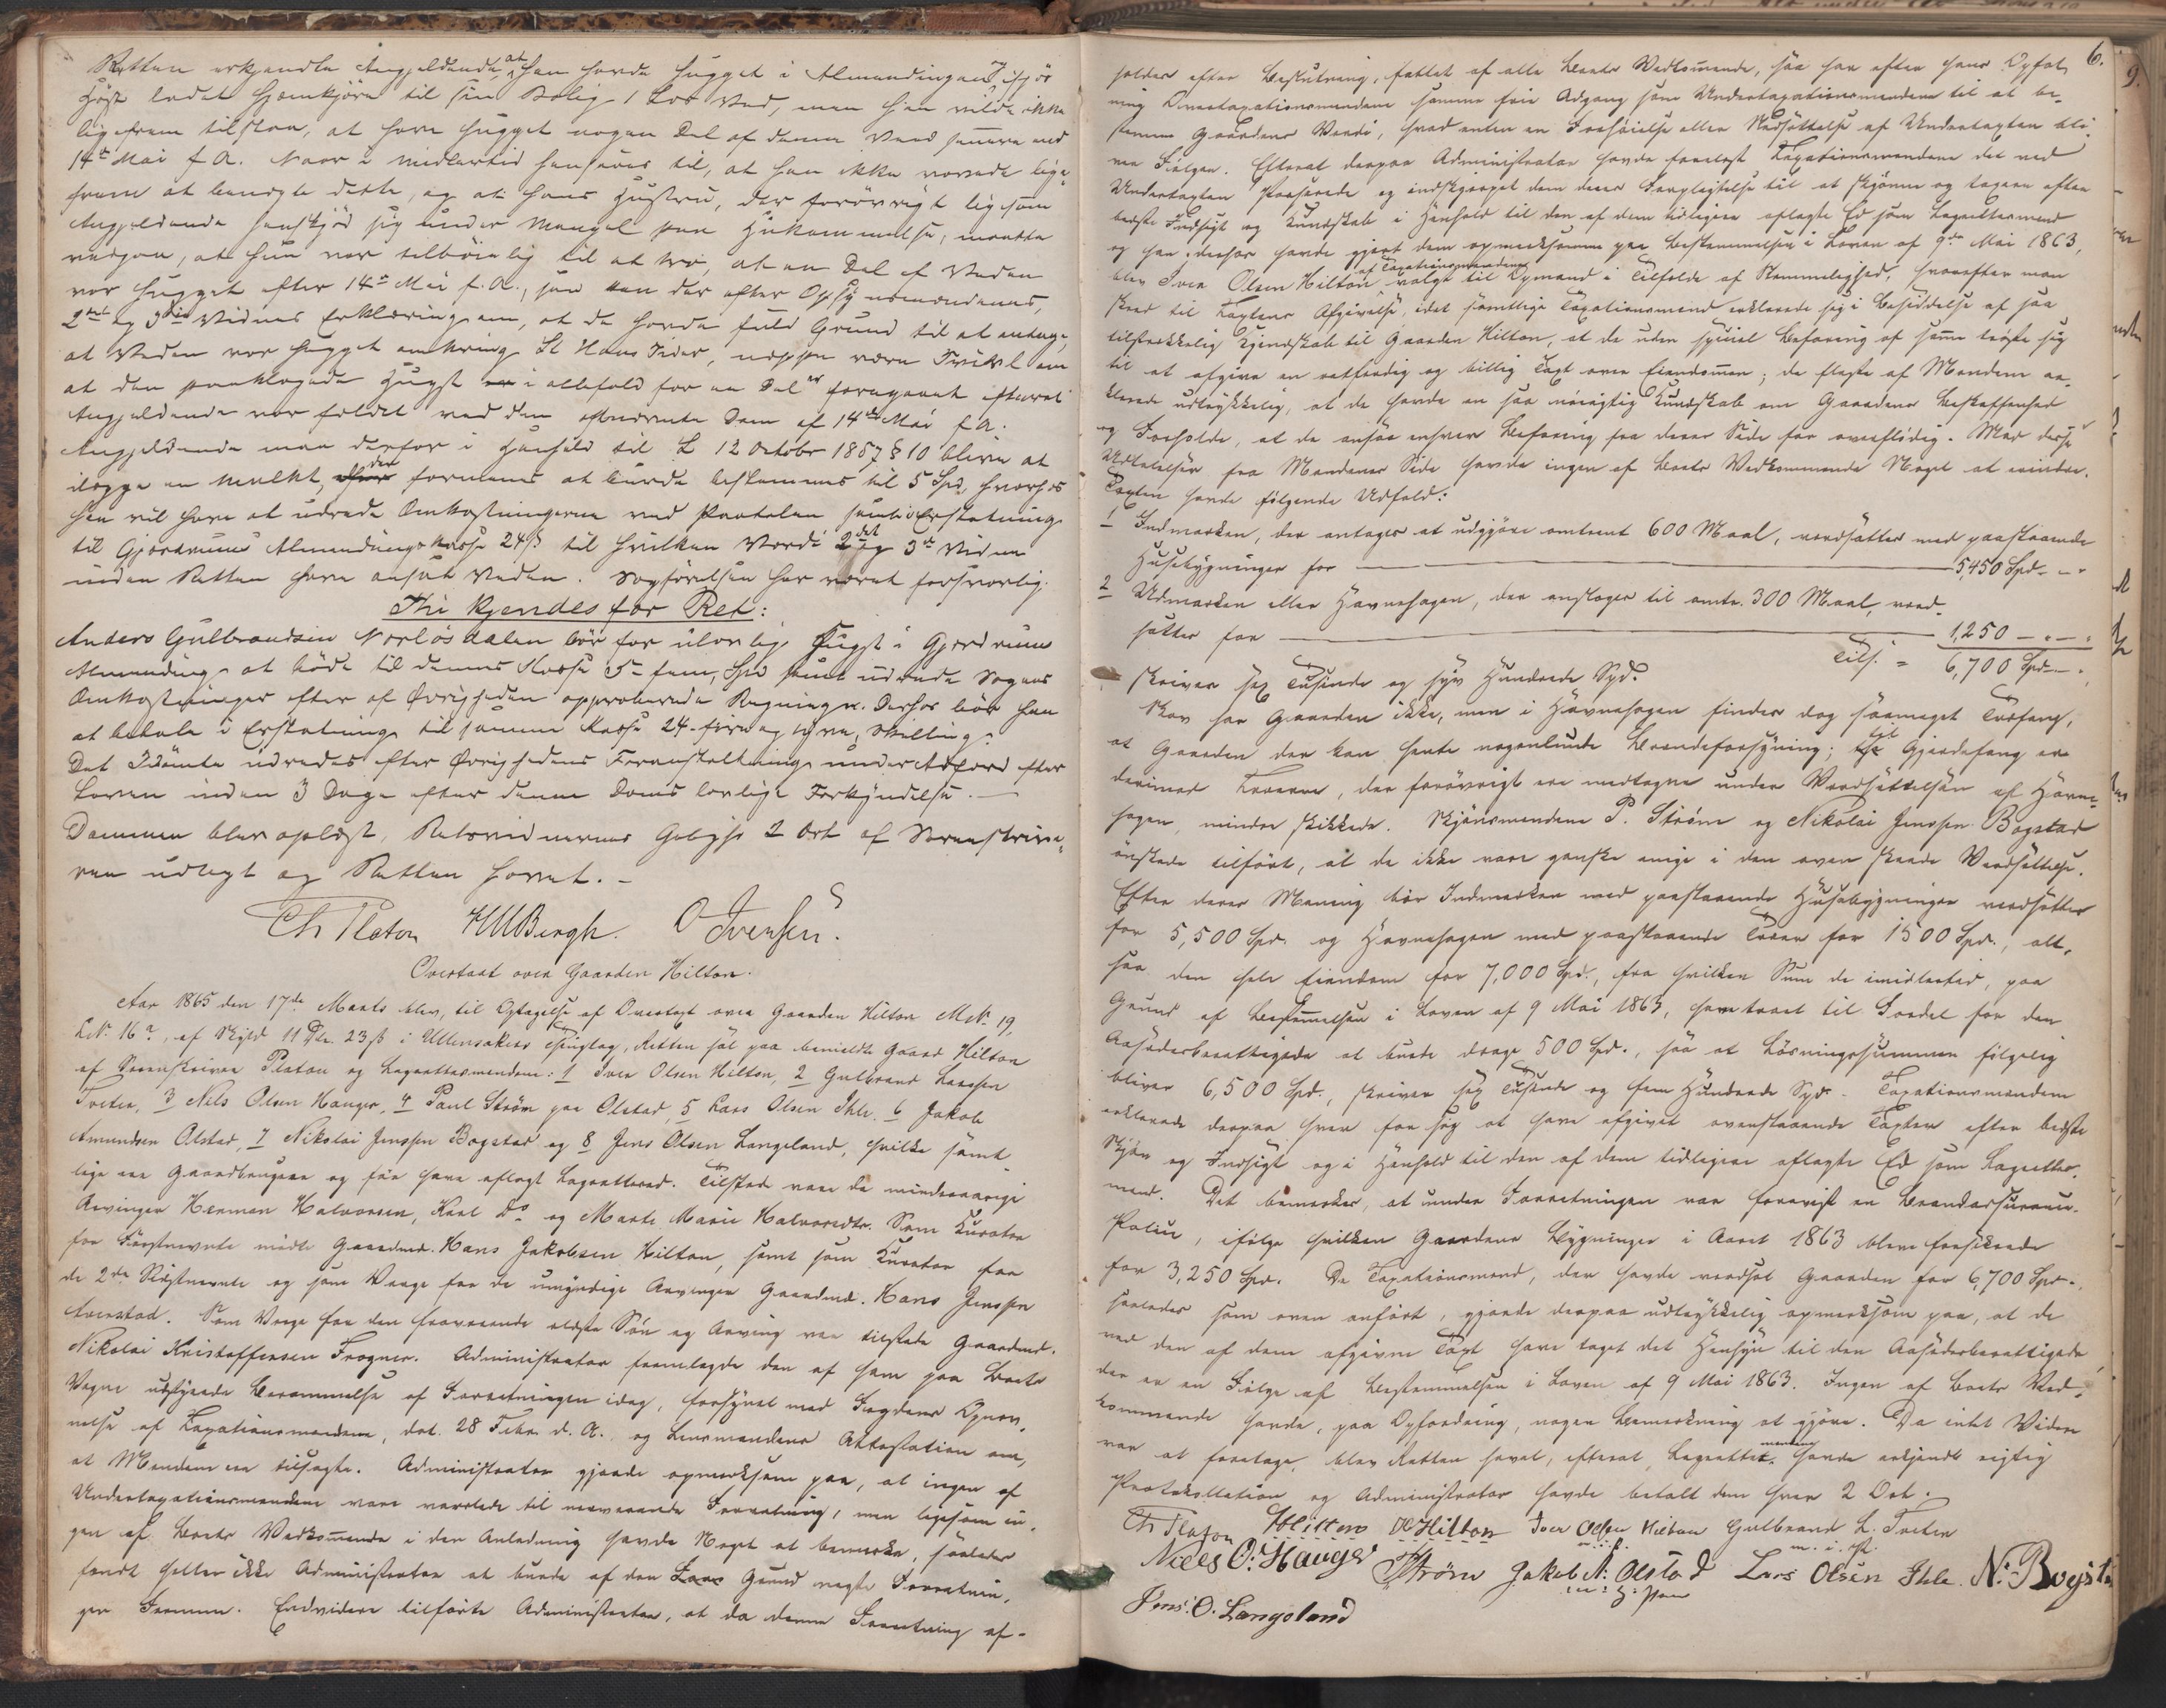 Retten erkjendte Angjeldende, at han havde hugget i Almendingen og ifjor
Höst ladet hjemkjöre til sin Bolig 1 Las Ved, men han vilde ikke
ligefrem tilstaa, at have hugget nogen Del af denne Ved senere end
14de Mai f. A. Naar i midlertid hensees til, at han ikke vovede lige-
frem at benegte dette, og at hans Hustru, der forövrigt ligesom
Angjeldende henskjöd sig under Mangel paa Hukommelse, maatte
vedgaa, at hun var tilböielig til at tro, at en Del af Veden
var hugget efter 14de Mai f. A., saa kan der efter Opsynsmændenes,
2det og 3die Vidnes Erklæring om, at de havde fuld Grund til at antage,
at Veden var hugget omkring St Hans Tider, neppe være Tvivl om
at den paaklagede Hugst i allefald for en Del er foregaaet efterat
Angjeldende var fældet ved den ovennævnte Dom af 14de Mai f. A.
Angjeldende maa derfor i Henhold til L 12 October 1857 § 10 blive at
ilægge en Mulkt, der formenes at burde bestemmes til 5 Spd, hvorhos
han vil have at udrede Omkostningerne ved Paatalen samt i Erstatning
til Gjerdrums Almendingskasse 24 ß til hvilken Værdi 2det og 3die Vidne
inden Retten have ansat Veden. Sagförelsen har været forsvarlig.
Thi kjendes for Ret:
Anders Gulbrandsen Nerløsdalen bör for ulovlig Hugst i Gjerdrums
Almending at böde til dennes Kasse 5- fem, Spd samt udrede Sagens
Omkostninger efter af Øvrigheden approberede Regninger. Derhos bör han
at betale i Erstatning til samme Kasse 24- fire og tyve, Skilling.
Det Idömte udredes efter Øvrighedens Foranstaltning under Adfærd efter
Loven inden 3 Dage efter denne Doms lovlige Forkyndelse. —
Dommen blev oplæst, Retsvidnernes Gebyhr 2 Ort af Sorenskrive-
ren udlagt og Retten hævet. –
Ch Platou HMBergh. O Ivensen.
Overtaxt over Gaarden Hilton.
Aar 1865 den 17de Marts blev, til Optagelse af Overtaxt over Gaarden Hilton M.N. 19,
L.N. 16a, af Skyld 11 Dlr. 23 ß i Ullensakers Thinglag, Retten sat paa bemeldte Gaard Hilton
af Sorenskriver Platou og Lagrettesmendene: 1 Iver Olsen Hilton, 2 Gulbrand Larssen
Tveter, 3 Nils Olsen Hauger, 4 Paul Ström paa Olstad, 5 Lars Olsen Ihle. 6 Jakob
Amundsen Olstad, 7 Nikolai Jenssen Bogstad og 8 Jens Olsen Langeland, hvilke samt-
lige ere Gaardbrugere og før have aflagt Lagretteed. Tilstede vare de mindreaarige
Arvinger Herman Halvorsen, Karl Do og Marte Marie Halvorsdtr. Som Kurator
for Förstnevnte mödte Gaardmd. Hans Jakobsen Hilton, samt som Kurator for
de 2de Sidstnevnte og som Verge for de umyndige Arvinger Gaardmd. Hans Jenssen
Averstad. Som Verge for den fraværende eldste Sön og Arving var tilstede Gaardmd.
Nikolai Kristoffersen Frogner. Administrator fremlagde den af ham paa Boets
Vegne udstedede Berammelse af Forretningen idag, forsynet med Fogdens Opnev-
nelse af Taxationsmendene, dat. 28 Febr. d. A. og Lensmandens Attestation om,
at Mendene ere tilsagte. Administrator gjorde opmerksom paa, at ingen af
Undertaxationsmendene vare varslede til nerværende Forretning, men ligesom in-
gen af Boets Vedkommende i den Anledning havde Noget at bemerke, saaledes
fandt heller ikke Administrator at burde af den Grund negte Forretnin-
gen Fremme. Endvidere tilförte Administrator, at da denne Forretning af-
6.
holdes efter Beslutning, fattet af alle Boets Vedkommende, saa har efter hans Opfat-
ning Overtaxationsmendene samme frie Adgang som Undertaxationsmendene til at be-
stemme Gaardens Verdi, hvad enten en Forhöielse eller Nedsettelse af Undertaxten bli-
ver Fölgen. Efterat derpaa Administrator havde forelest Taxationsmendene det ved
Undertaxten Passerede og indskjerpet dem deres Forpligtelse til at skjönne og taxere efter
bedste Indsigt og Kundskab i Henhold til den af dem tidligere aflagte Ed som Lagrettesmend
og han derhos havde gjort dem opmerksomme paa Bestemmelsen i Loven af 9de Mai 1863,
blev Iver Olsen Hilton af Taxationsmendene valgt til Opmand i Tilfelde af Stemmelighed, hvorefter man
skred til Taxtens Afgivelse, idet samtlige Taxationsmend erklerede sig i Besiddelse af saa
tilstrekkelig Kjendskab til Gaarden Hilton, at de uden speciel Befaring af samme tröstede sig
til at afgive en retferdig og billig Taxt over Eiendommen; de fleste af Mendene er-
klerede udtrykkelig, at de havde en saa nöiagtig Kundskab om Gaardens Beskaffenhed
og Forholde, at de ansaa enhver Befaring fra deres Side for overflödig. Mod disse
Udtalelser fra Mendenes Side havde ingen af Boets Vedkommende Noget at erindre.
Taxten havde fölgende Udfald:
1 Indmarken, der antages at udgjöre omtrent 600 Maal, verdsattes med paastaaende
Husebygninger for — 5,450 Spd. – "
2 Udmarken eller Havnehagen, der anslaaes til omtr. 300 Maal, verd-
sattes for — 1,250 – " – "
Tils. = 6,700 Spd. – "
skriver sex Tusinde og syv Hundrede Spd.
Skov har Gaarden ikke, men i Havnehagen findes dog saameget Trefang,
at Gaarden der kan hente nogenlunde Brendeforsyning; til Gjerdefang er
derimod Treerne, der forövrigt ere medtagne under Verdsettelsen af Havne-
hagen, mindre skikkede. Skjönsmendene P. Ström og Nikolai Jenssen Bogstad
önskede tilfört, at de ikke vare ganske enige i den oven skeede Verdsettelse.
Efter deres Mening bör Indmarken med paastaaende Husebygninger verdsettes
for 5,500 Spd. og Havnehagen med paastaaende Treer for 1500 Spd., alt-
saa den hele Eiendom for 7,000 Spd., fra hvilken Sum de imidlertid, paa
Grund af Bestemmelsen i Loven af 9 Mai 1863, have troet til Fordel for den
Aasedesberettigede at burde drage 500 Spd., saa at Lösningssummen fölgelig
bliver 6,500 Spd., skriver sex Tusinde og fem Hundrede Spd. Taxationsmendene
erklerede derpaa hver for sig at have afgivet ovenstaaende Taxter efter bedste
Skjön og Indsigt og i Henhold til den af dem tidligere aflagte Ed som Lagrettes-
mend. Det bemerkes, at under Forretningen var forevist en Brandassurance-
Police, ifölge hvilken Gaardens Bygninger i Aaret 1863 bleve forsikrede
for 3,250 Spd. De Taxationsmend, der havde verdsat Gaarden for 6,700 Spd.,
saaledes som oven anfört, gjorde derpaa udtrykkelig opmerksom paa, at de
ved den af dem afgivne Taxt have taget det Hensyn til den Aasedesberettigede,
der er en Fölge af Bestemmelsen i Loven af 9 Mai 1863. Ingen af Boets Ved-
kommende havde, paa Opfordring, nogen Bemerkning at gjöre. Da intet Videre
var at foretage, blev Retten hevet, efterat Lagrettesmendene havde erkjendt rigtig
Protokollation og Administrator havde betalt dem hver 2 Ort.
Ch Platou Hilton Hilton Iver Olsen Hilton Gulbrand L. Tveter
m. i. P.
Niels O. Hauger PStröm Jakob A. Olstad Lars Olsen Ihle. N. Bogstad
Jens. O. Langeland